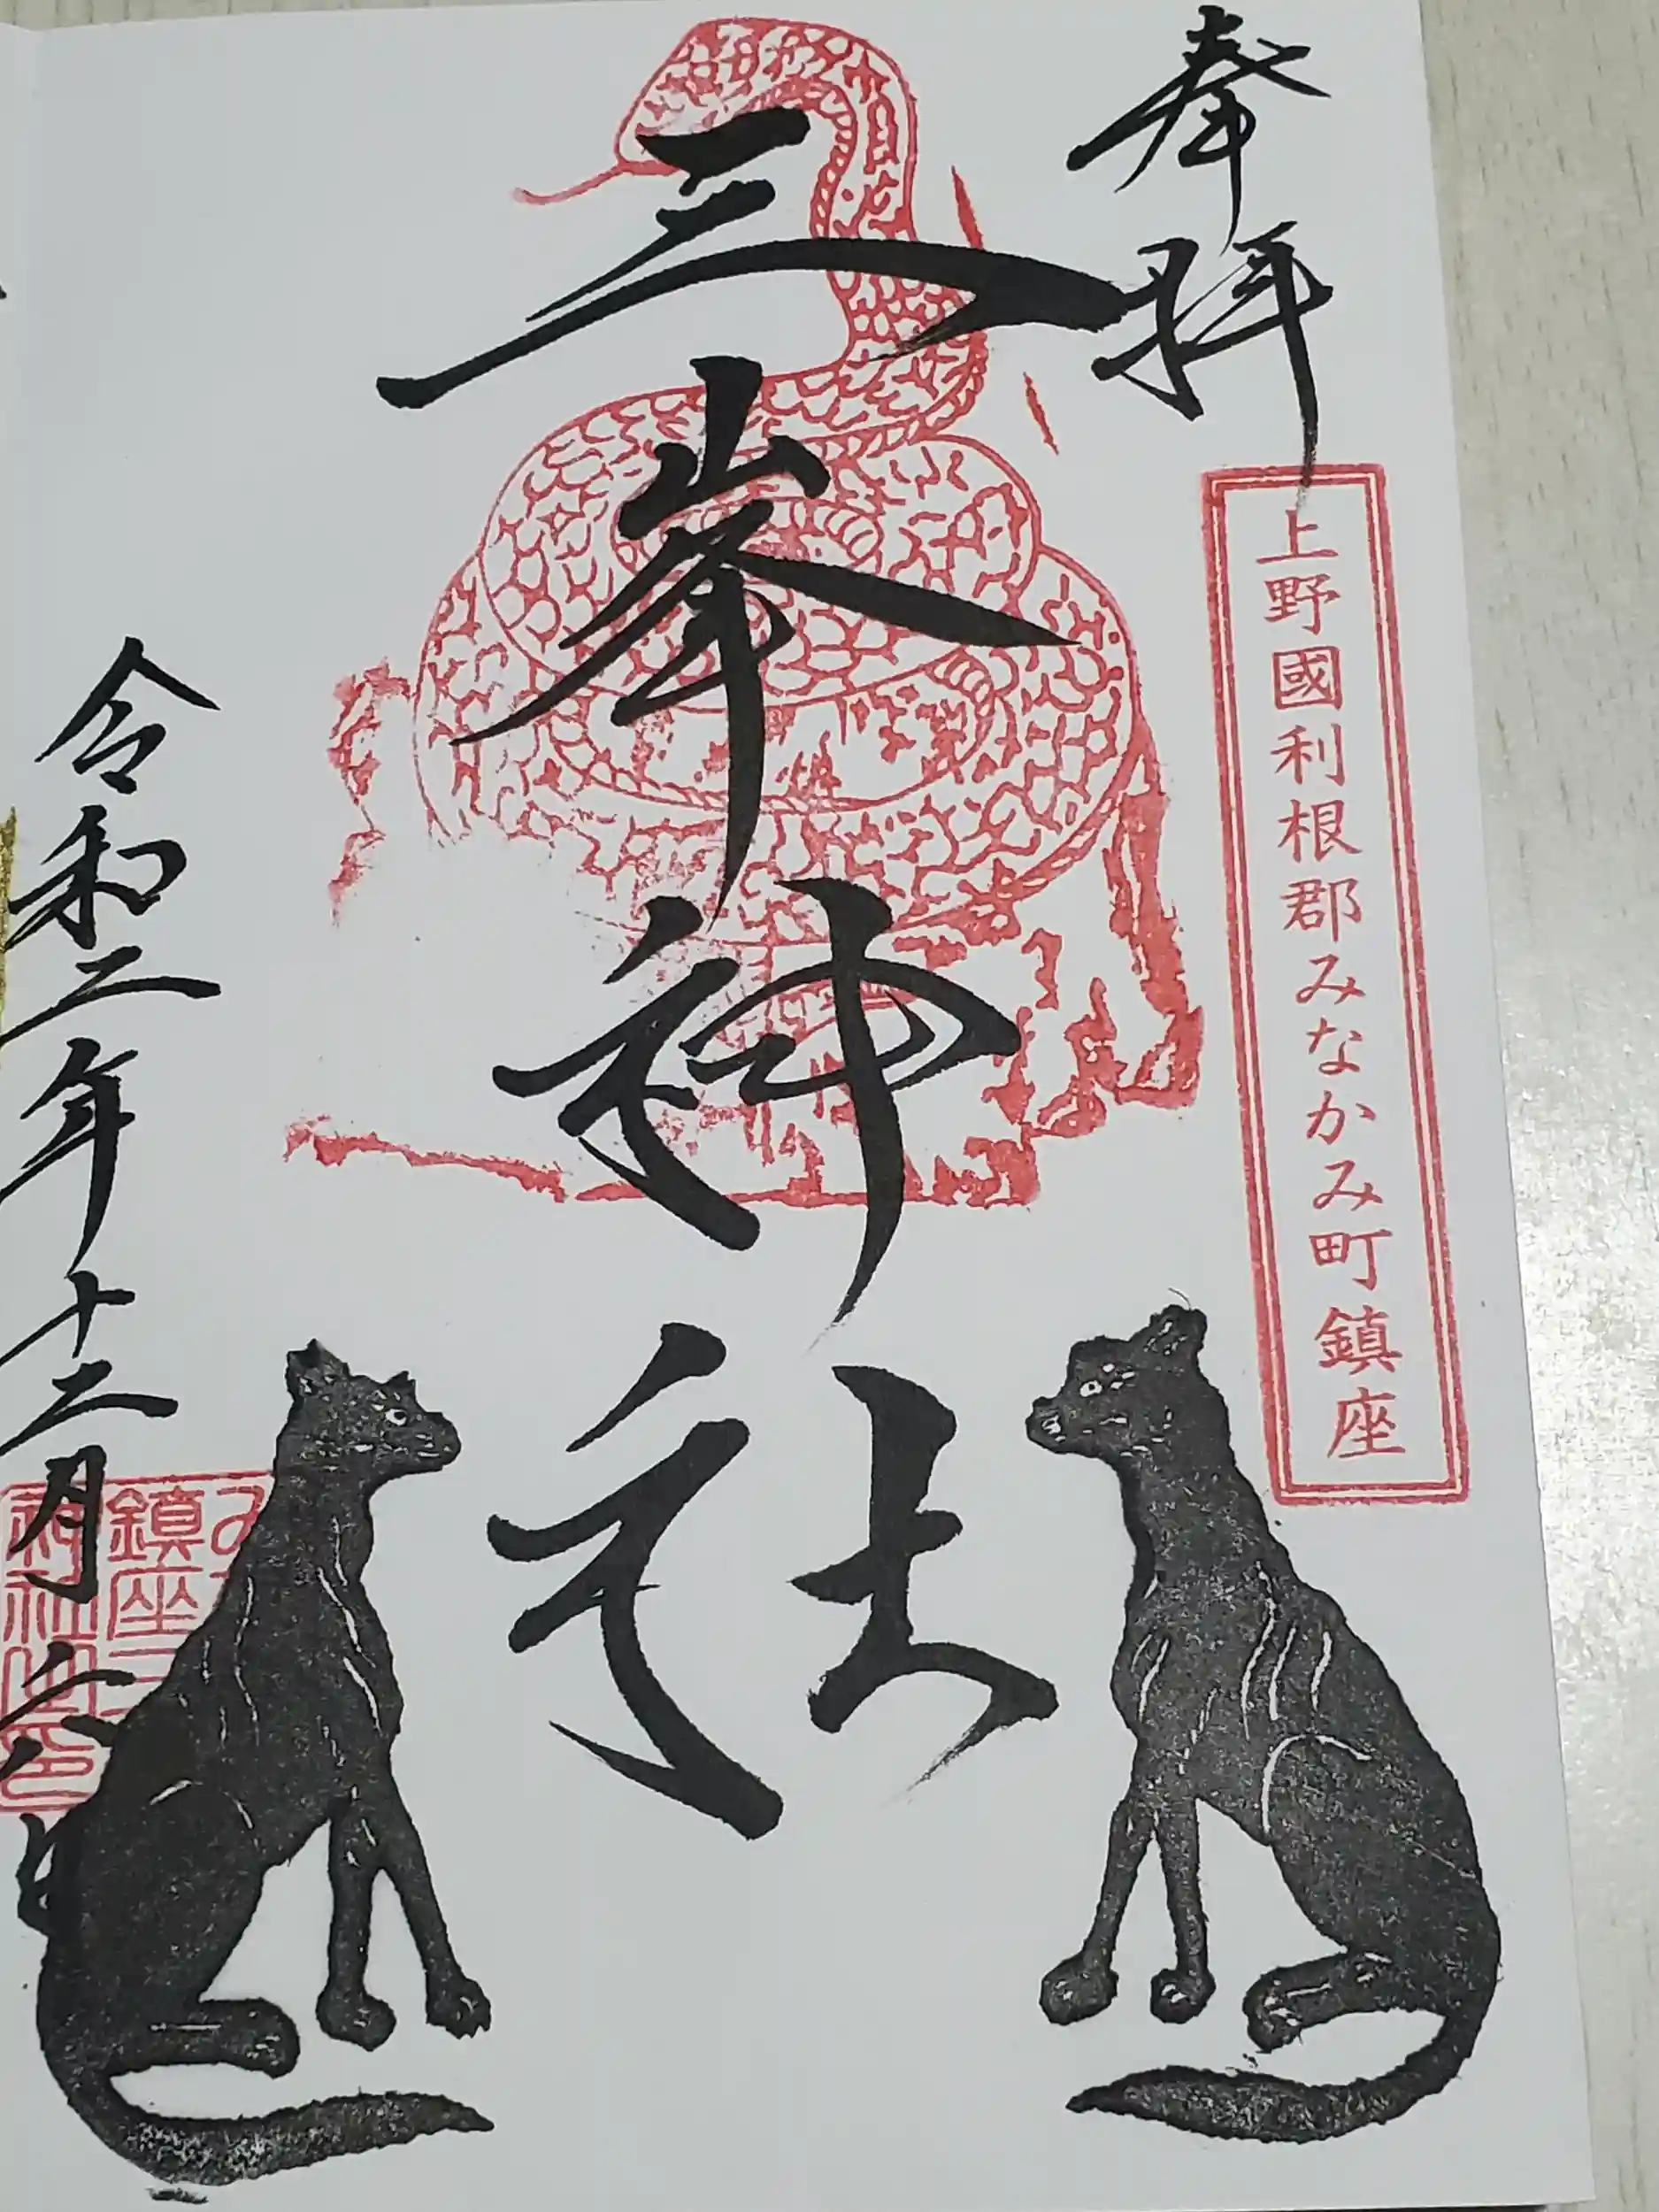 奉拝
上野國利根郡みなかみ町鎮座
三峯神社
令和二年十二月
鎮座三
神社之印